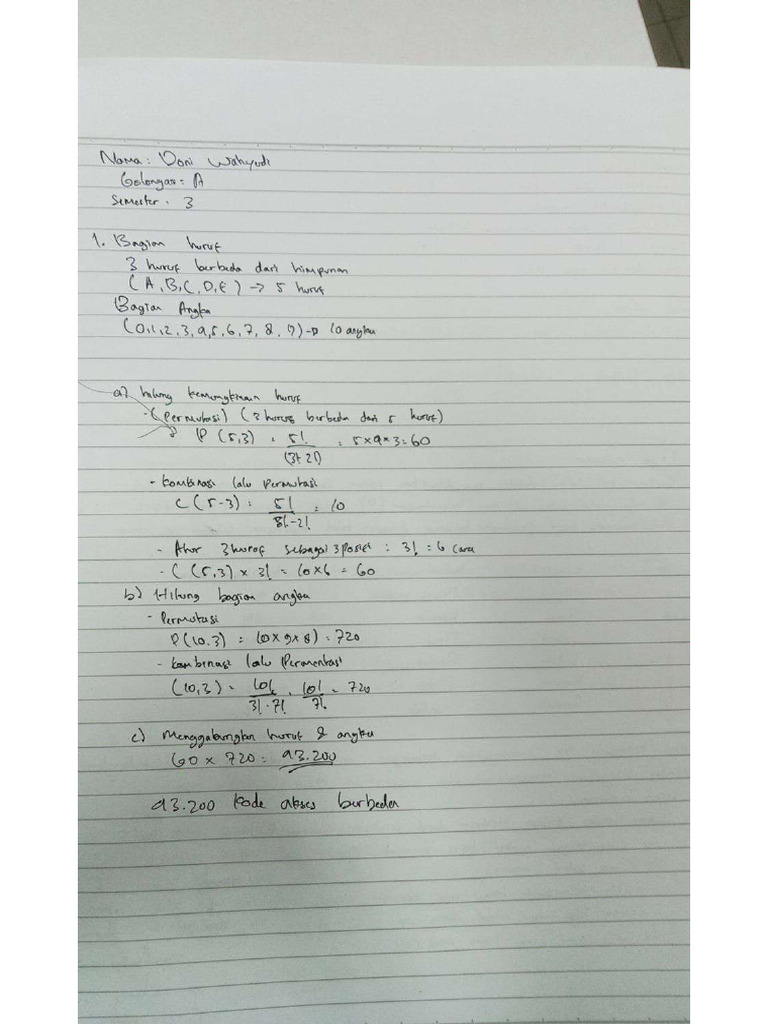 Nama : Doni Wahyudi
Golongan : A
Semester : 3
1. Bagian huruf
3 huruf berbeda dari himpunan
(A, B, C, D, E) -> 5 huruf
Bagian Angka
(0,1,2,3,4,5,6,7,8,9) -> 10 angka
a) hitung kemungkinan huruf
- (Permutasi) (3 huruf berbeda dari 5 huruf)
P (5,3) = 5! / (3+2!) = 5×4×3=60
- Kombinasi lalu Permutasi
C (5-3) = 5! / 3!-2! = 10
- Atur 3 huruf sebagai 3 posisi : 3! = 6 cara
- C (5,3) × 3! = 10×6 = 60
b) Hitung bagian angka
- Permutasi
P(10.3) = (0×9×8) = 720
- Kombinasi lalu Permentasi
(10,3) = 10! / 3!·7! · 10! / 7! = 720
c) Menggabungkan huruf & angka
60 × 720 = 43.200
43.200 kode akses berbeda